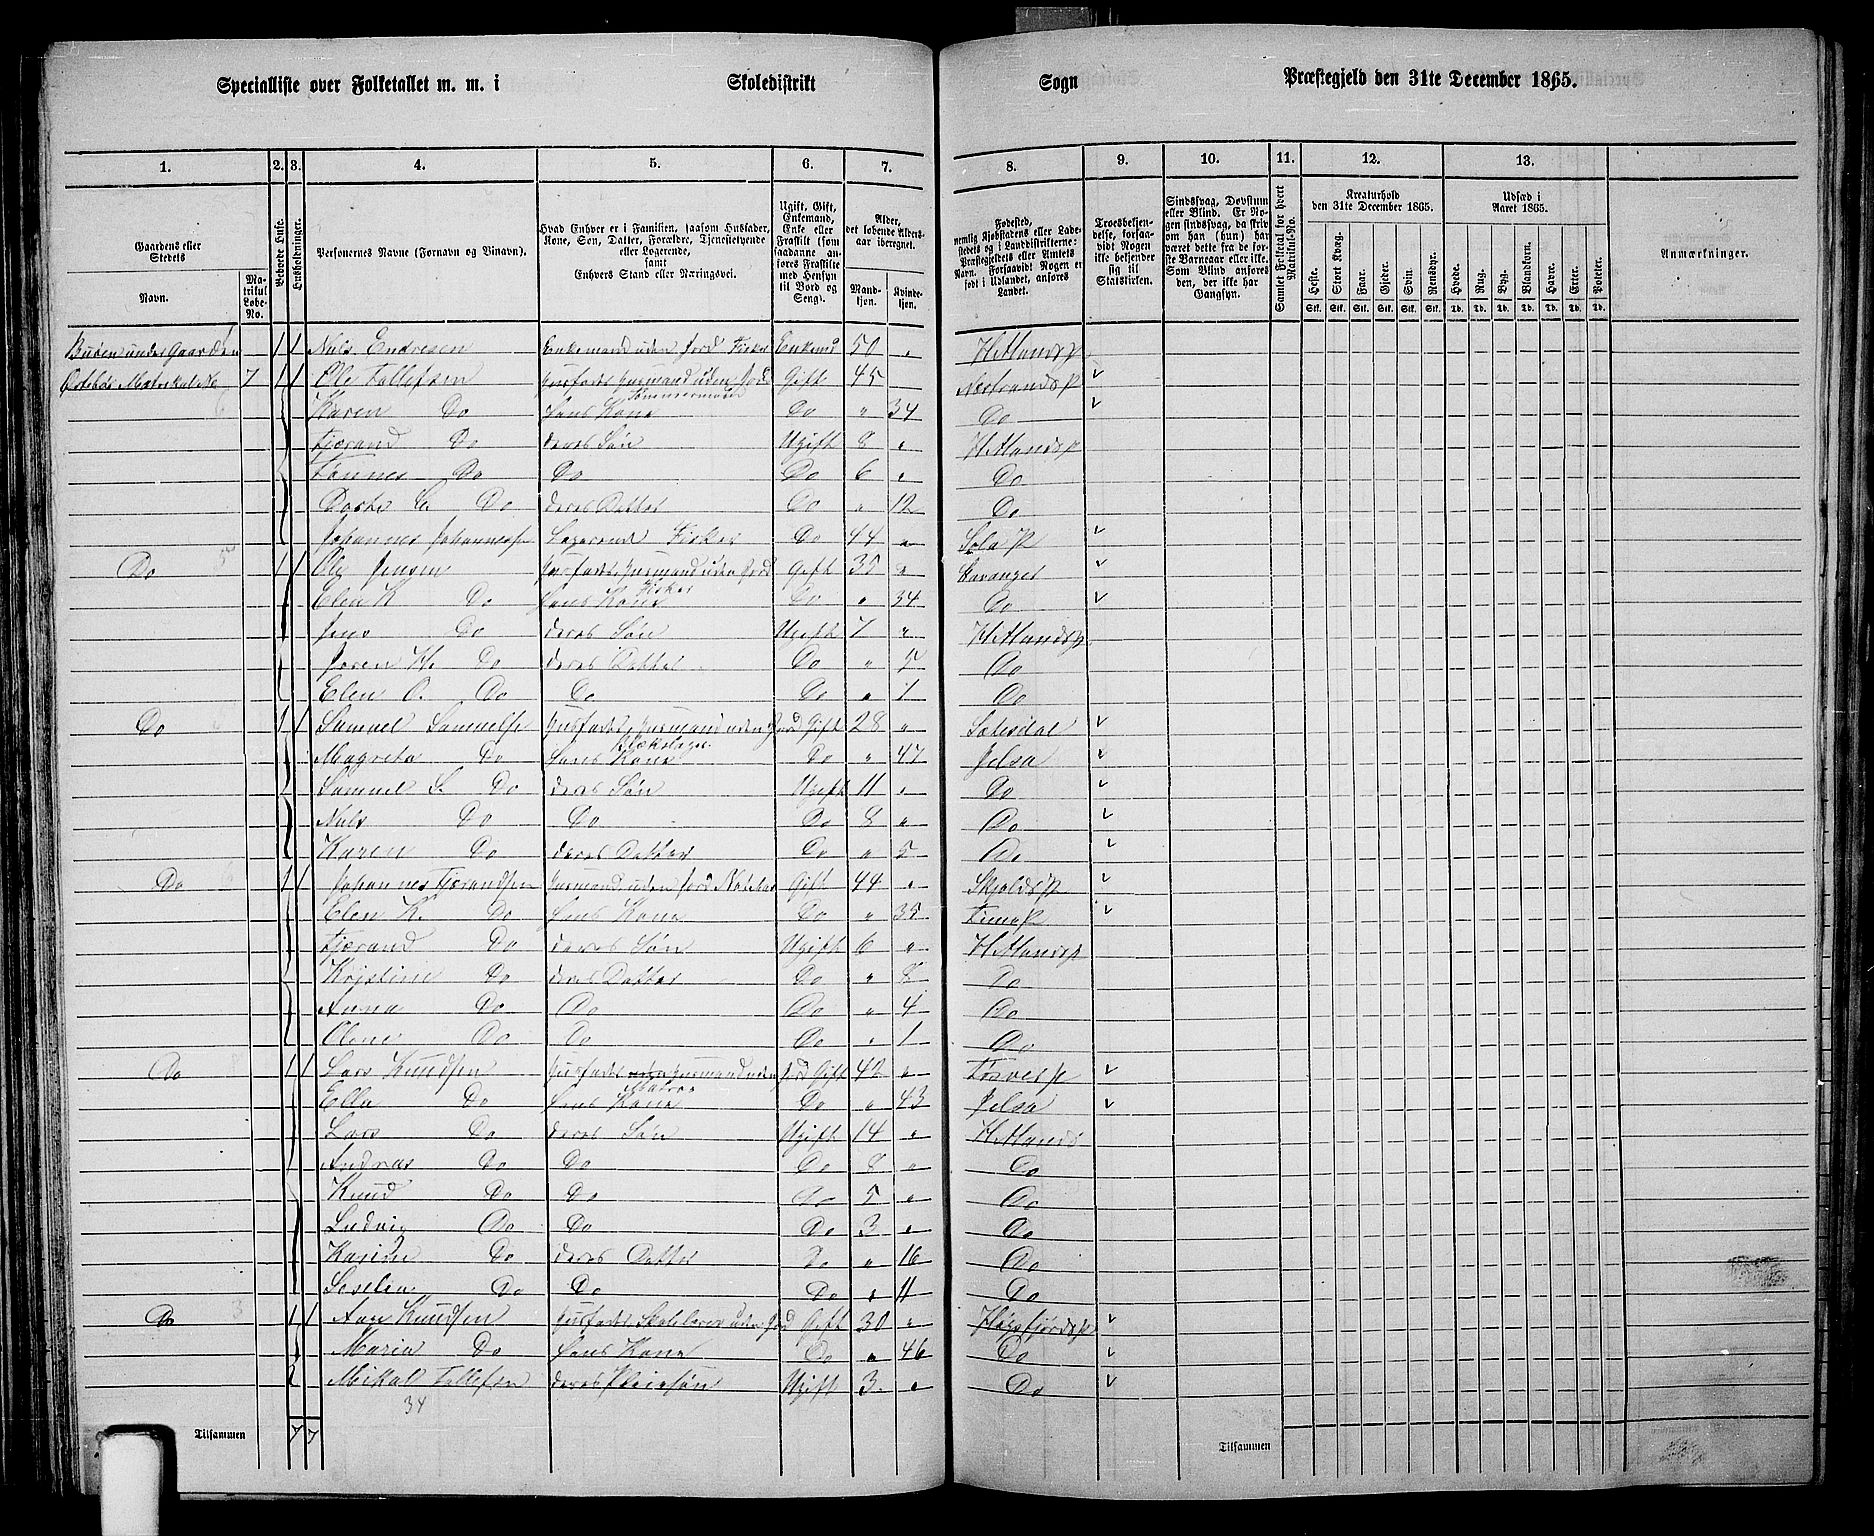 Specialliste over Folketallet m. m. i Skoledistrikt Sogn Præstegjeld den 31te December 1865.
1. 2. 3. 4. 5. 6. 7. 8. 9. 10. 11. 12. 13.
Gaardens eller Stedets
Navn.
Matrikul Løbe-No.
Beboede Huse.
Husholdninger.
Personernes Navne (Fornavn og Tilnavn).
Hvad Enhver er i Familien, saasom Husfader, Kone, Søn, Datter, Forældre, Tjenestetyende eller Logerende,
samt
Enhvers Stand eller Næringsvei.
Ugift, Gift, Enkemand, Enke eller Fraskilt (som saadanne anføres Fraskilte med Hensyn til Bord og Seng).
Alder, det løbende Aldersaar iberegnet.
Mandkjøn.
Kvindekjøn.
Fødested, nemlig Kjøbstadens eller Ladestedets og i Landdistrikterne: Præstegjeldets eller Amtets Navn. Forsaavidt Nogen er født i Udlandet, anføres Landet.
Troesbekjendelse, forsaavidt Nogen ikke bekjender sig til Statskirken.
Sindssvag, Døvstum eller Blind. Er Nogen sindssvag, da skriv om han (hun) har været dette fra de første Barneaar eller ikke. Som Blind anføres den, der ikke har Gangsyn.
Samlet Folketal for hvert Matrikul-No.
Kreaturhold den 31te December 1865.
Heste. Stk. Stort Kvæg. Stk. Faar. Stk. Gjeder. Stk. Svin. Stk. Rensdyr. Stk.
Udsæd i Aaret 1865.
Hvede. Td. Rug. Td. Byg. Td. Blandkorn. Td. Havre. Td. Erter. Td. Poteter. Td.
Anmærkninger.
Buøen under Gaarden 1 1 Nils Endresen Enkemand uden Jord Fisker Enkem 50 " Hetlandsp
7 1 1 Ole Tollefsen Husfader Husmand uden Jord Gift 45 Nerstrandsp
Karen Do Hans Kone Do " 34 Do
Fjerand Do deres Søn Ugift 8 " Hetlandsp
Tønnes Do Do Do 6 " Do
Do deres Datter Do " 12 Do
Johannes Johannesse Logerende Fisker Do 44 " Sola P
Do 1 1 Ole Jensen Husfader, Husmand uden Jord Gift 35 " Stavanger
Fisker
Elen K Do Hans Kone Do " 34 Do
Jens Do deres Søn Ugift 7 " Hetlandsp
Do deres Datter Do " 5 Do
Elen O. Do Do Do " 1 Do
Do 1 1 Samuel Samuelse Husfader, Husmand uden Jord Gift 28 "
Blikslager
Magreta Do Hans Kone Do " 47 Jelsa
Samuel S. Do deres Søn Ugift 11 " Do
Nils Do Do Do 8 " Do
Karen Do deres Datter Do " 5 Do
Do 1 1 Johannes Fjerandsen Husmand uden Jord Gift 44 " Skjolds P
Elen K. Do Hans Kone Do " 35
Fjerand Do deres Søn Ugift 6 " Hetlandsp
Kristine Do deres Datter Do " 8 Do
Anna Do Do Do " 4 Do
Oline Do Do Do " 1 Do
Do 1 1 Lars Knudsen Husfader Husmand uden Jord Gift 42 "
Ella Do Hans Kone Do " 43 Jelsa
Lars Do deres Søn Ugift 14 " Hetlands
Andreas Do Do Do 8 " Do
Knud Do Do Do 5 " Do
Ludvig Do Do Do 3 " Do
Do deres Datter Do " 16 Do
Do Do Do " 11 Do
Do 1 1 Knudsen Husfader Skolelærer uden Jord Gift 30 " Høgsfjordsp
Maria Do Hans Kone Do " 46 Do
Mikal Tollefsen deres Pleiesøn Ugift 3 " Do
34
Tilsammen 7 7 Tilsammen